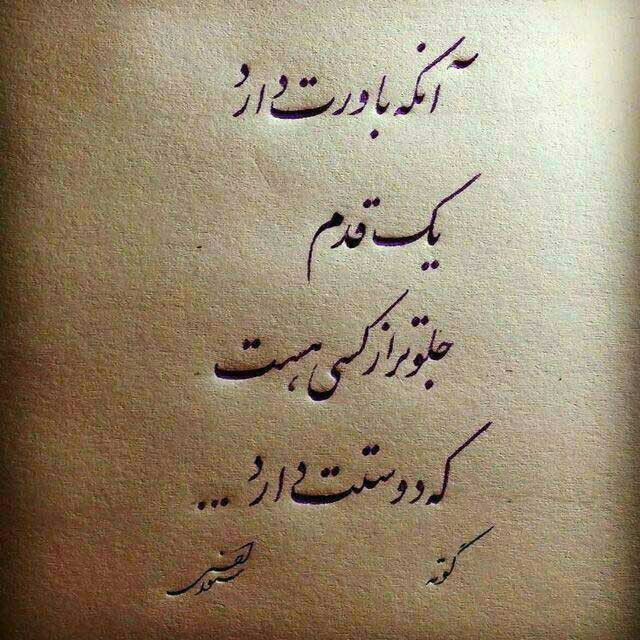 آنکه باورت دارد
یک قدم
جلوتر از کسی هست
که دوستت دارد...
گوته